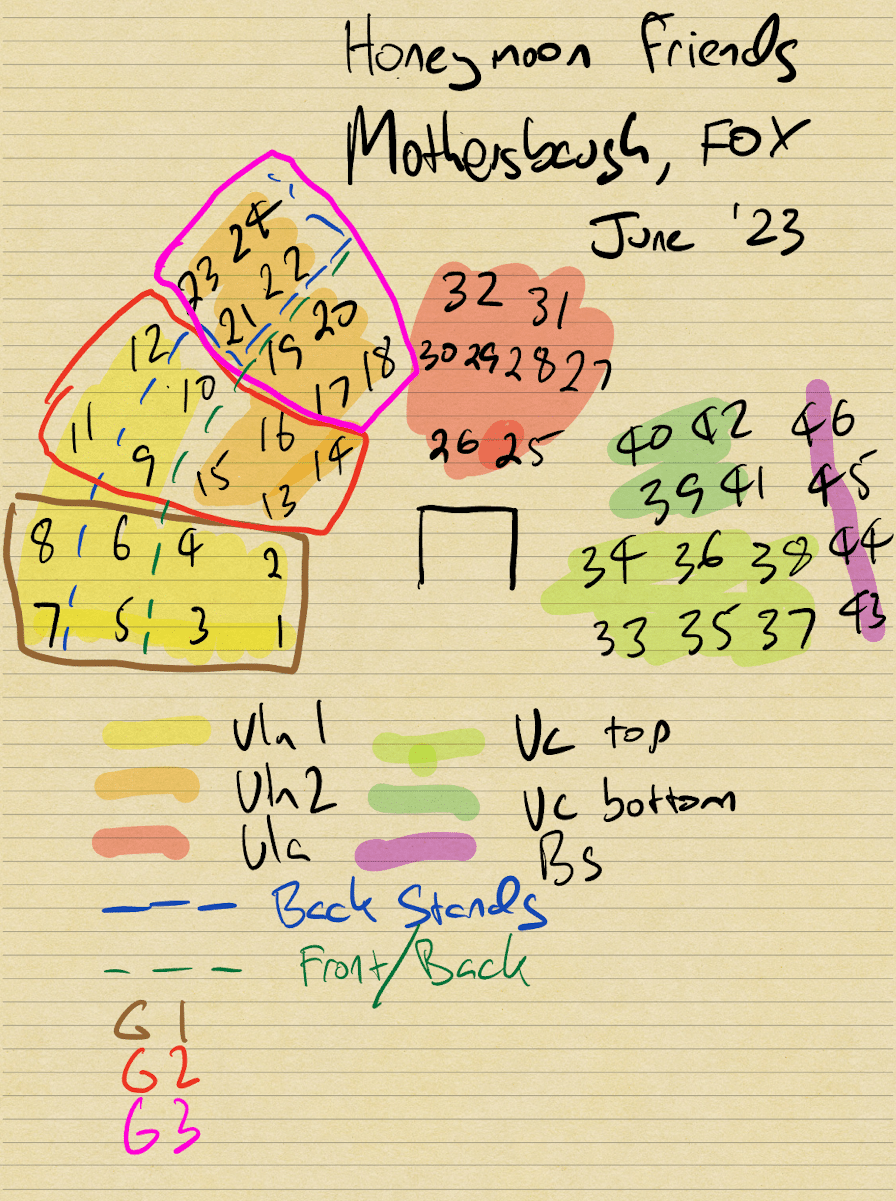 Honeymoon Friends
Mothersbaugh, FOX
June '23
24
23 22
21 20
12 19 18
10 17
11 16
9 15 14
13
8 6 4 2
7 5 3 1
32 31
30 29 28 27
26 25
40 42 46
39 41 45
34 36 38 44
33 35 37 43
Vln 1 Vc top
Vln 2 Vc bottom
Vla Bs
Back Stands
Front/Back
G1
G2
G3